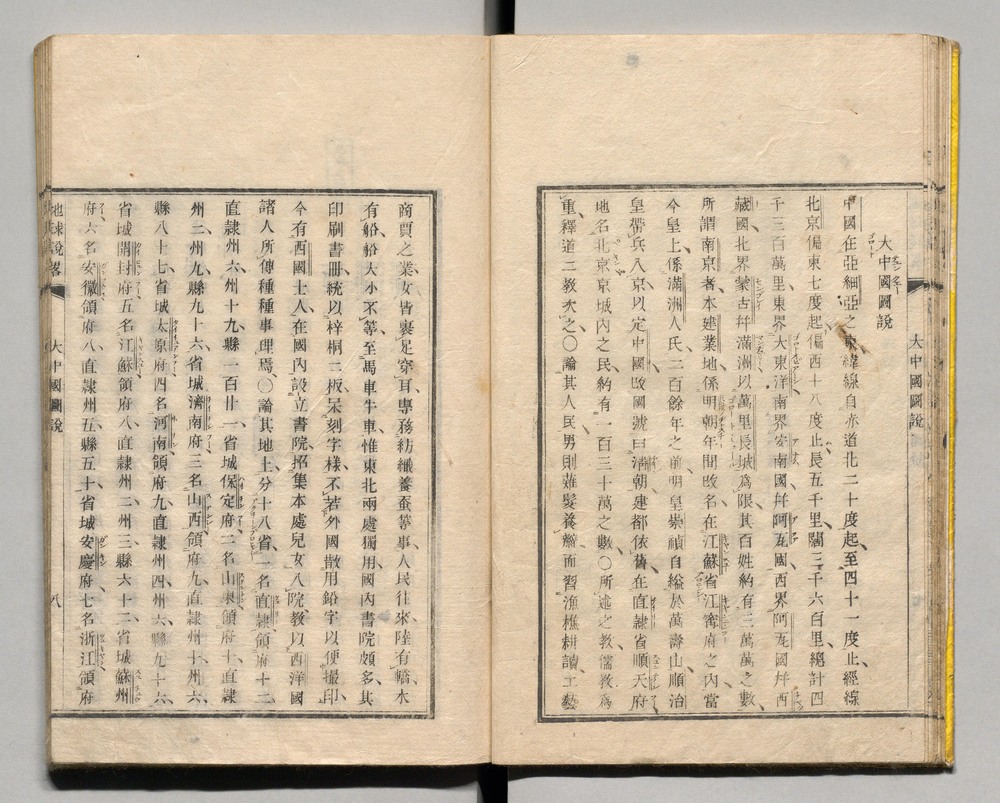 大中國圖說
大中國圖說
中國在亞細亞之東緯線自赤道北二十度起至四十一度止經線
北京偏東七度起偏西十八度止長五千里闊三千六百里總計四
千三百萬里東界大東洋南界安南國幷阿瓦國西界阿瓦國幷西
藏國北界蒙古幷滿洲以萬里長城爲限其百姓約有三萬萬之數
所謂南京者本建業地係明朝年間改名在江蘇省江寗府之內當
今皇上係滿洲人氏二百餘年之前明皇崇禎自縊於萬壽山順治
皇帶兵入京以定中國改國號曰淸朝建都依舊在直隸省順天府
地名北京京城內之民約有一百三十萬之數〇所述之敎儒敎爲
重釋道二敎次之〇論其人民男則薙髮養辮而習漁樵耕讀工藝
商賈之業女皆裹足穿耳專務紡織養蚕等事人民往來陸有轎水
有船船大小不等至馬車牛車惟東北兩處獨用國內書院頗多其
印刷書冊統以梓桐二板呆刻字樣不若外國散用鉛字以便撮印
今有西國士人在國內設立書院招集本處兒女入院敎以西洋國
諸人所傳種種事理焉〇論其地土分十八省一名直隸領府十二
直隸州六州十九縣一百廿一省城保定府二名山東領府十直隸
州二州九縣九十六省城濟南府三名山西領府九直隸州十州六
縣八十七省城太原府四名河南領府九直隸州四州六縣九十六
省城開封府五名江蘇領府八直隸州二州三縣六十二省城蘇州
府六名安徽領府八直隸州五縣五十省城安慶府七名浙江領府
地球說畧
大中國圖說
八